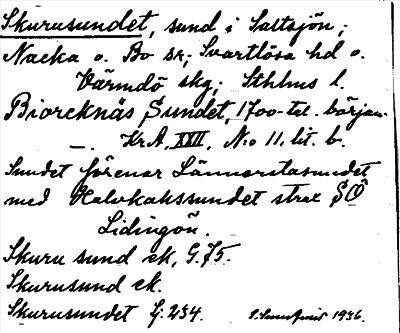 Skurusundet, sund i Saltsjön;
Nacka o. Bo sn; Svartlösa hd o.
Värmdö skg; Sthlms l.
Biorcknäs Sundet, 1700-tal. början.
—. KrA, XXII, N:o 11. lit. b.
Sundet förenar Lännerstasundet
med Halvkakssundet strax SÖ
Lidingön.
Skuru sund ek, G. 75.
Skurusund ek.
Skurusundet G. 234. 1936.